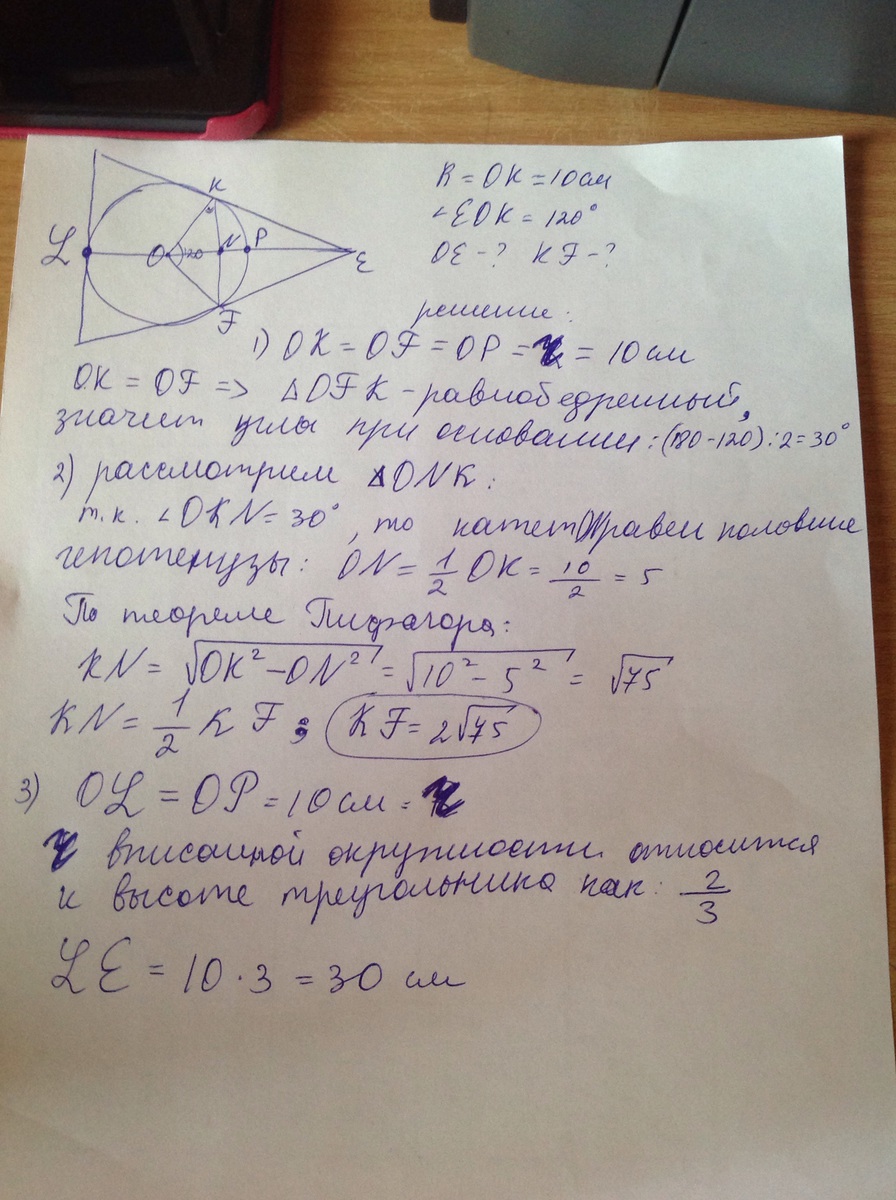 K
L
O
120
N
P
E
F
R = OK = 10 см
∠EOK = 120°
OE - ? KF - ?
решение:
1) OK = OF = OP = r = 10 см
OK = OF => △OFK - равнобедренный,
значит углы при основании: (180-120):2=30°
2) рассмотрим △ONK:
т.к. ∠OKN = 30°, то катет ON равен половине
гепотенузы: ON = 1/2 OK = 10/2 = 5
По теореме Пифагора:
KN = √(OK² - ON²) = √(10² - 5²) = √75
KN = 1/2 KF; KF = 2√75
3) OL = OP = 10 см = r
r вписанной окружности относится
к высоте треугольника как: 2/3
LE = 10 · 3 = 30 см